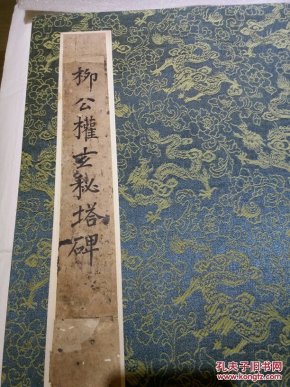 柳公權玄秘塔碑
孔夫子旧书网